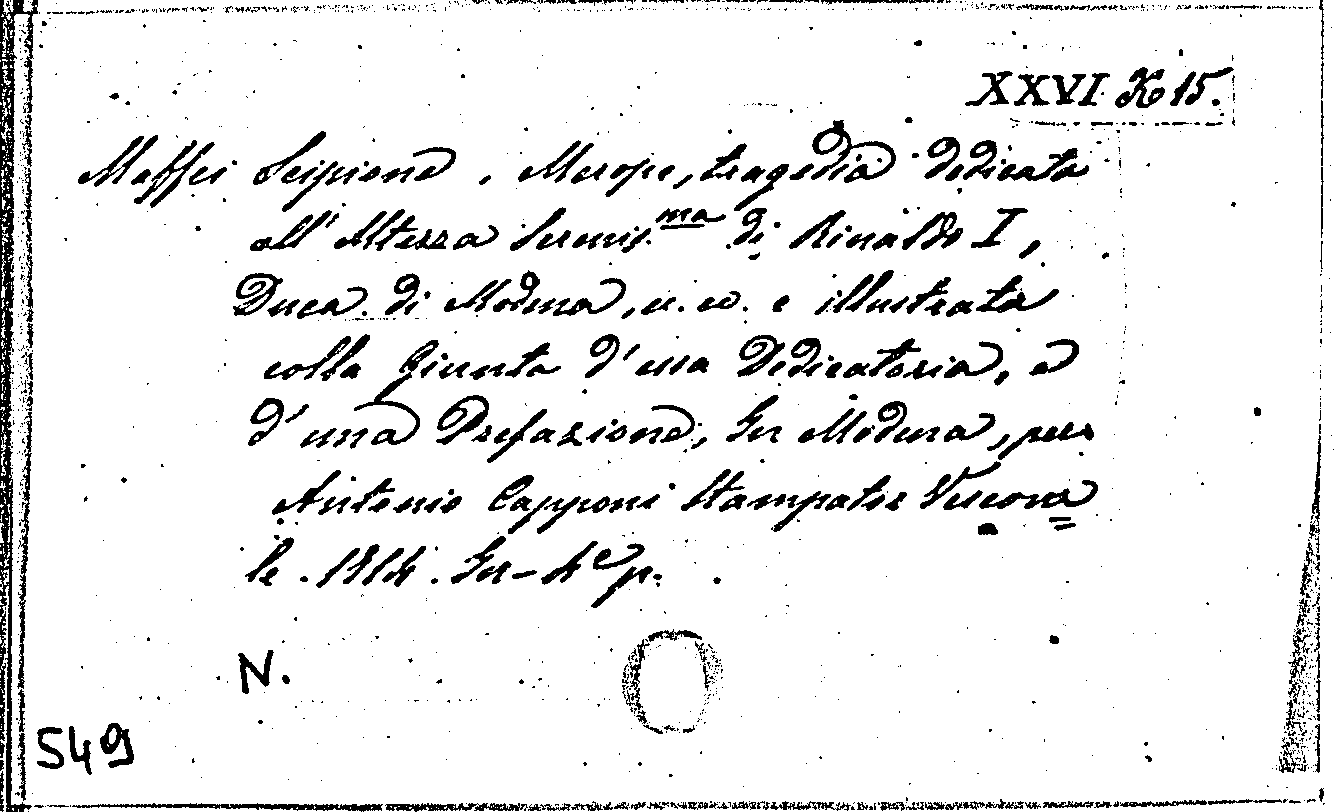 XXVI K 15.
Maffei Scipione. Merope, tragedia dedicata
all'Altezza Sereniss.ma di Rinaldo I,
Duca di Modena, ec. ec. e illustrata
colla Giunta d'una Dedicatoria, e
d'una Prefazione, In Modena, per
Antonio Capponi Stampator Vescova
le. 1714. In-4° p.
N.
549